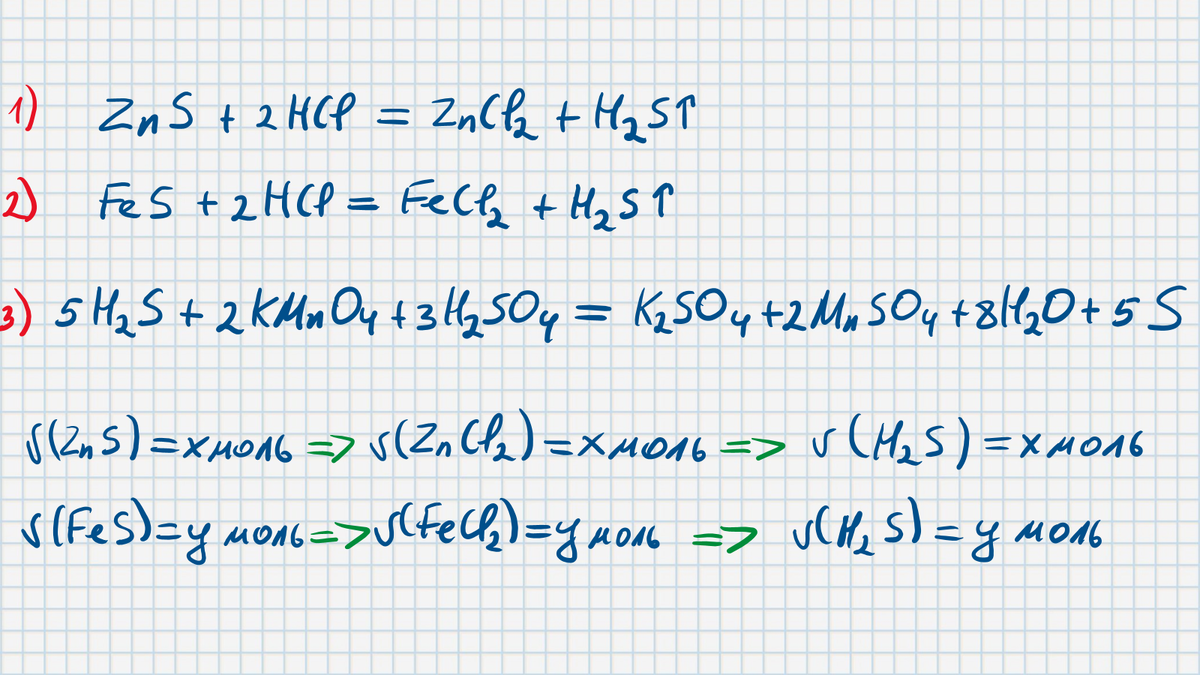 1) ZnS + 2HCl = ZnCl₂ + H₂S↑
2) FeS + 2HCl = FeCl₂ + H₂S↑
3) 5H₂S + 2KMnO₄ + 3H₂SO₄ = K₂SO₄ + 2MnSO₄ + 8H₂O + 5S
ν(ZnS) = x моль => ν(ZnCl₂) = x моль => ν(H₂S) = x моль
ν(FeS) = y моль => ν(FeCl₂) = y моль => ν(H₂S) = y моль